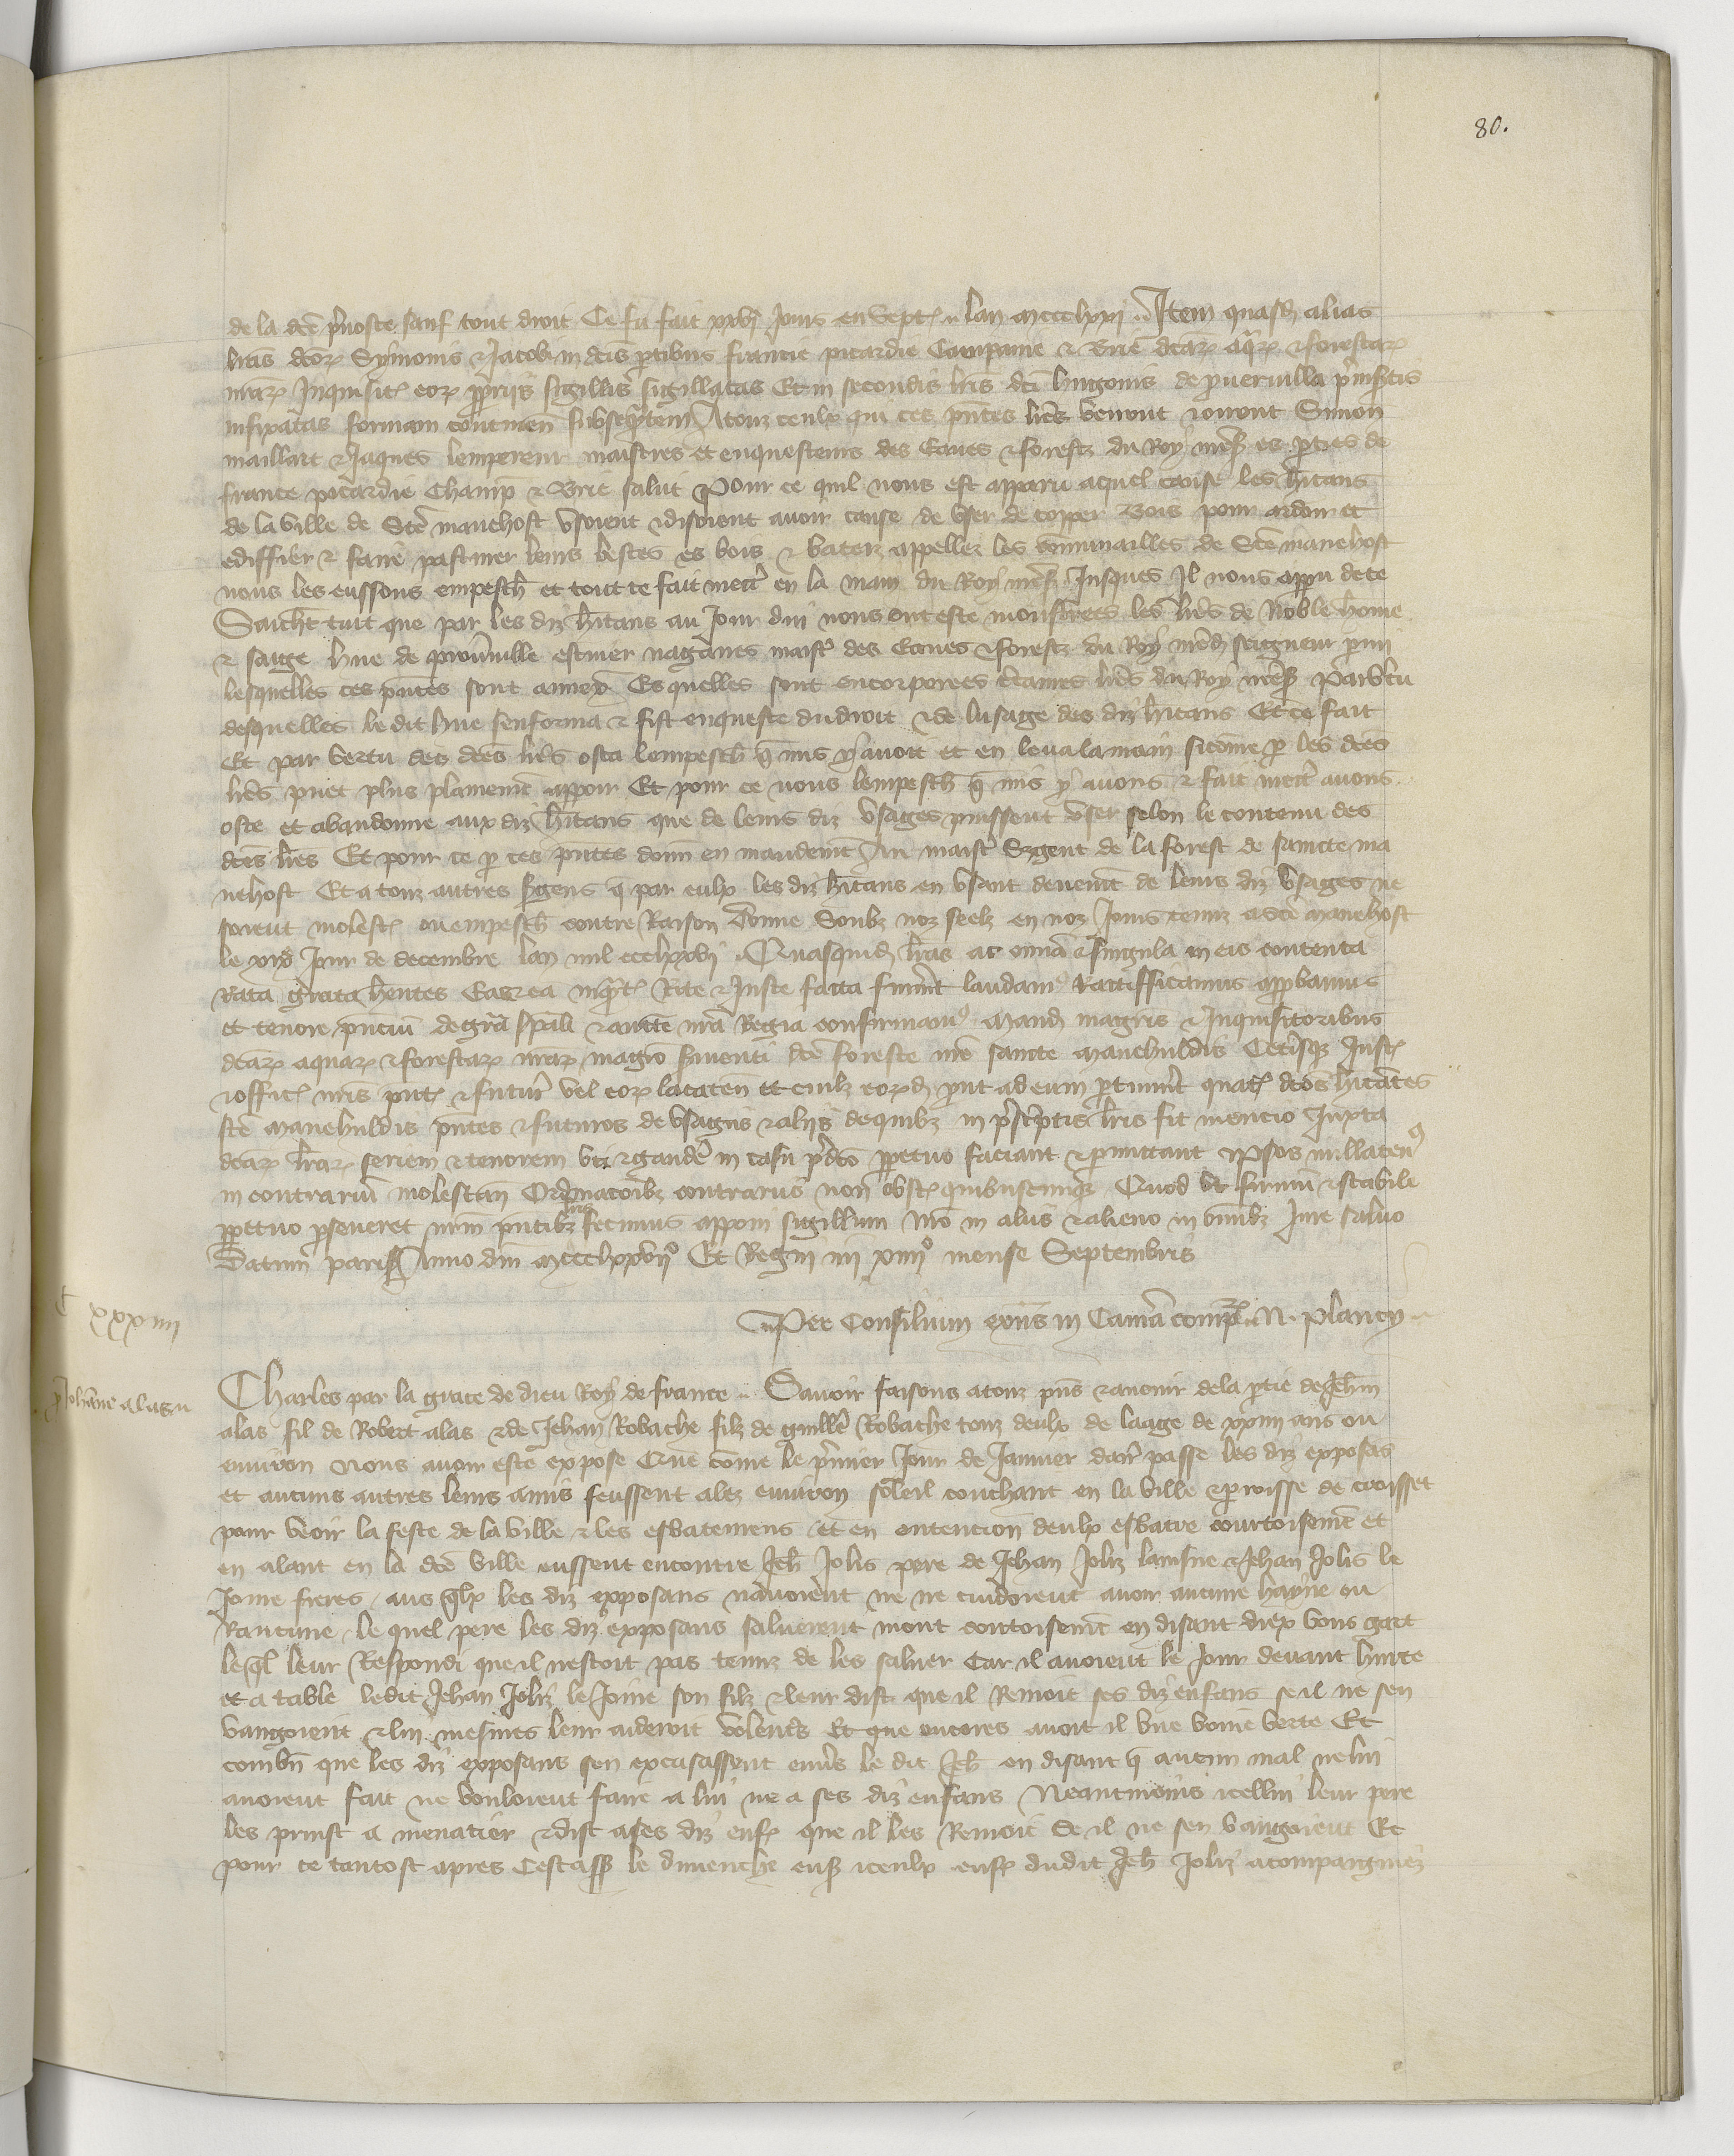 80.
de la dce pruoste sauf tout droit Ce fu fait xxvi Jours en Sept lan mccclxxi Item quasd alias
lras dcor Symonis & Jacobi in dcis ptibus francie picardie Campanie & Brie dcar aqr & forestar
nrar Inquisit eor pprijs sigillis sigillatas Et in secondis lris dci hugonis de pruervilla
infixatas formam continen subscriptem A touz ceulx qui ces pntes lres verront & orront Simon
maillart & Jaques lempereur maistres et enquesteurs des Eaues & forestz du Roy nres es pties de
france picardie Champ & Brie salut Pour ce quil nous est apparu a quel cause les hitans
de la ville de Ste manehost usoient & disoient avoir cause de user de coper Bois pour ardoir et
ediffier & faire pasturer leurs bestes es bois & appellez les communailles de Ste manehost
nous les eussons empesch et tout ce fait mettr en la main du Roy nres Jusques Il nous appu de ce
Saichent tuit que par les diz hitans au Jour dui nous ont este monstrees les lres de Noble home
& saige hue de escuier maistr des Eaues & forestz du Roy nred seigneur pmi
lesquelles ces pntes sont annex Es quelles sont encorporees ctaines lres du Roy nres Par vtu
desquelles le dit hue senforma & fist enqueste du droit & de lusage des diz hitans Et ce fait
Et par vertu des dces lres osta lempesch q mis y avoit et en leva la main sicome p les dces
lres puet plus plainemt apparoir Et pour ce nous lempesch q mis y avons & fait mettr avons
oste et abandonne aux diz hitans que de leurs diz usages puissent user selon le contenu des
dces lres Et pour ce p ces pntes donn en mandemt Au maistr Sergent de la forest de saincte ma
nehost Et a touz autres sgens q par eulx les diz hitans en usant deuemt de leurs diz usages ne
soient molest ou empesch contre Raison Donne Soubz noz seelz en noz Jours tenuz a Ste manehost
le Jour de decembre lan mil ccclxxvi Quasquid lras ac omia & singula in eis contenta
Rata & grata hentes Ea & rite & Juste facta fuerint laudam Rattifficamus approbamus
et tenore pncium de gra spali & aucte nra Regia confirmam Mand magris & Inquisitoribus
dcar aquar & forestar nrar magro servienti dce foreste nre sancte Manehildis Cetisque Just
& offic nris pnt & futur vel eor locaten et cuilz eord prout ad eum ptinuit quat dcos hitates
ste Manehildis pntes & futuros de usagiis & alijs de quibz in prescriptis lris fit mencio Juxta
dcar lrar seriem & tenorem uti & gaudere in casu prdco ppetuo faciant & pmittant Ipsos nullaten
in contrarium molestan Ordinacoibz contrariis non obst quibuscumque Quod ut firmum & stabile
ppetuo pseveret nrm pntibz lris fecimus apponi sigillum Nro in aliis & alieno in omibz Jure salvo
Datum paris Anno dni mccclxxvij Et Regni nri xiiij mense Septembris
Per Consilium exns in Camera compr N. Plancy
C xxxiiii
p Johanne alas
Charles par la grace de dieu Roy de france Savoir faisons a touz pns & avenir de la ptie de Jehan
alas fil de Robert alas & de Jehan Robache filz de guille Robache touz deulx de laage de xxiiii ans ou
environ Nous avoir este expose Que come le prmier Jour de Januier darr passe les diz exposas
et aucuns autres leurs amis feussent alez environ soleil couchant en la ville & proisse de croisset
pour veoir la feste de la ville & les esbatemens et en entencion deulx esbatre courtoisemt et
en alant en la dce ville eussent encontre Jeh Jolis pere de Jehan Joliz lainsne & Jehan Jolis le
Jone freres aus qlx les diz exposans navoient ne ne cuidoient avoir aucune hayne ou
Rancune le quel pere les diz exposans saluerent mont cortoisemt en disant diex vous gart
leql leur Respondi que il nestoit pas tenuz de les saluer Car il avoient le Jour devant hurte
et a table ledit Jehan Joliz le Joine son filz & leur dist que il Renioit ses diz enfans se il ne sen
vangoient & lui mesmes leur aideroit volents Et que encores avoit il une bonne verte Et
combn que les diz exposans sen excusassent envrs le dit Jeh en disant q aucun mal ne lui
avoient fait ne vouloient faire a lui ne a ses diz enfans Neantmoins icellui leur pere
les prinst a menacier & dist a ses diz enf que il les Renioit Se il ne sen vangoient Et
pour ce tantost apres Cestass le dimenche ens iceulx enf dudit Jeh Joliz acompaigniez